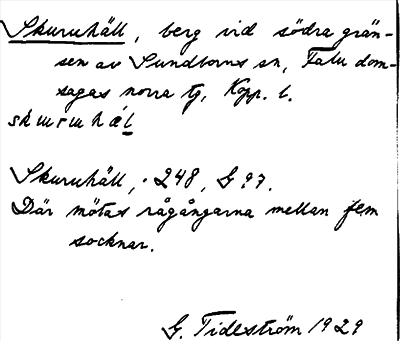 Skuruhäll, berg vid södra grän-
sen av Sundborns sn, Falu dom-
sagas norra tg, Kopp. l.
skuruhæ̀l
Skuruhäll, · 248, G 97.
Där mötas rågångarna mellan fem
socknar.
G. Tideström 1929